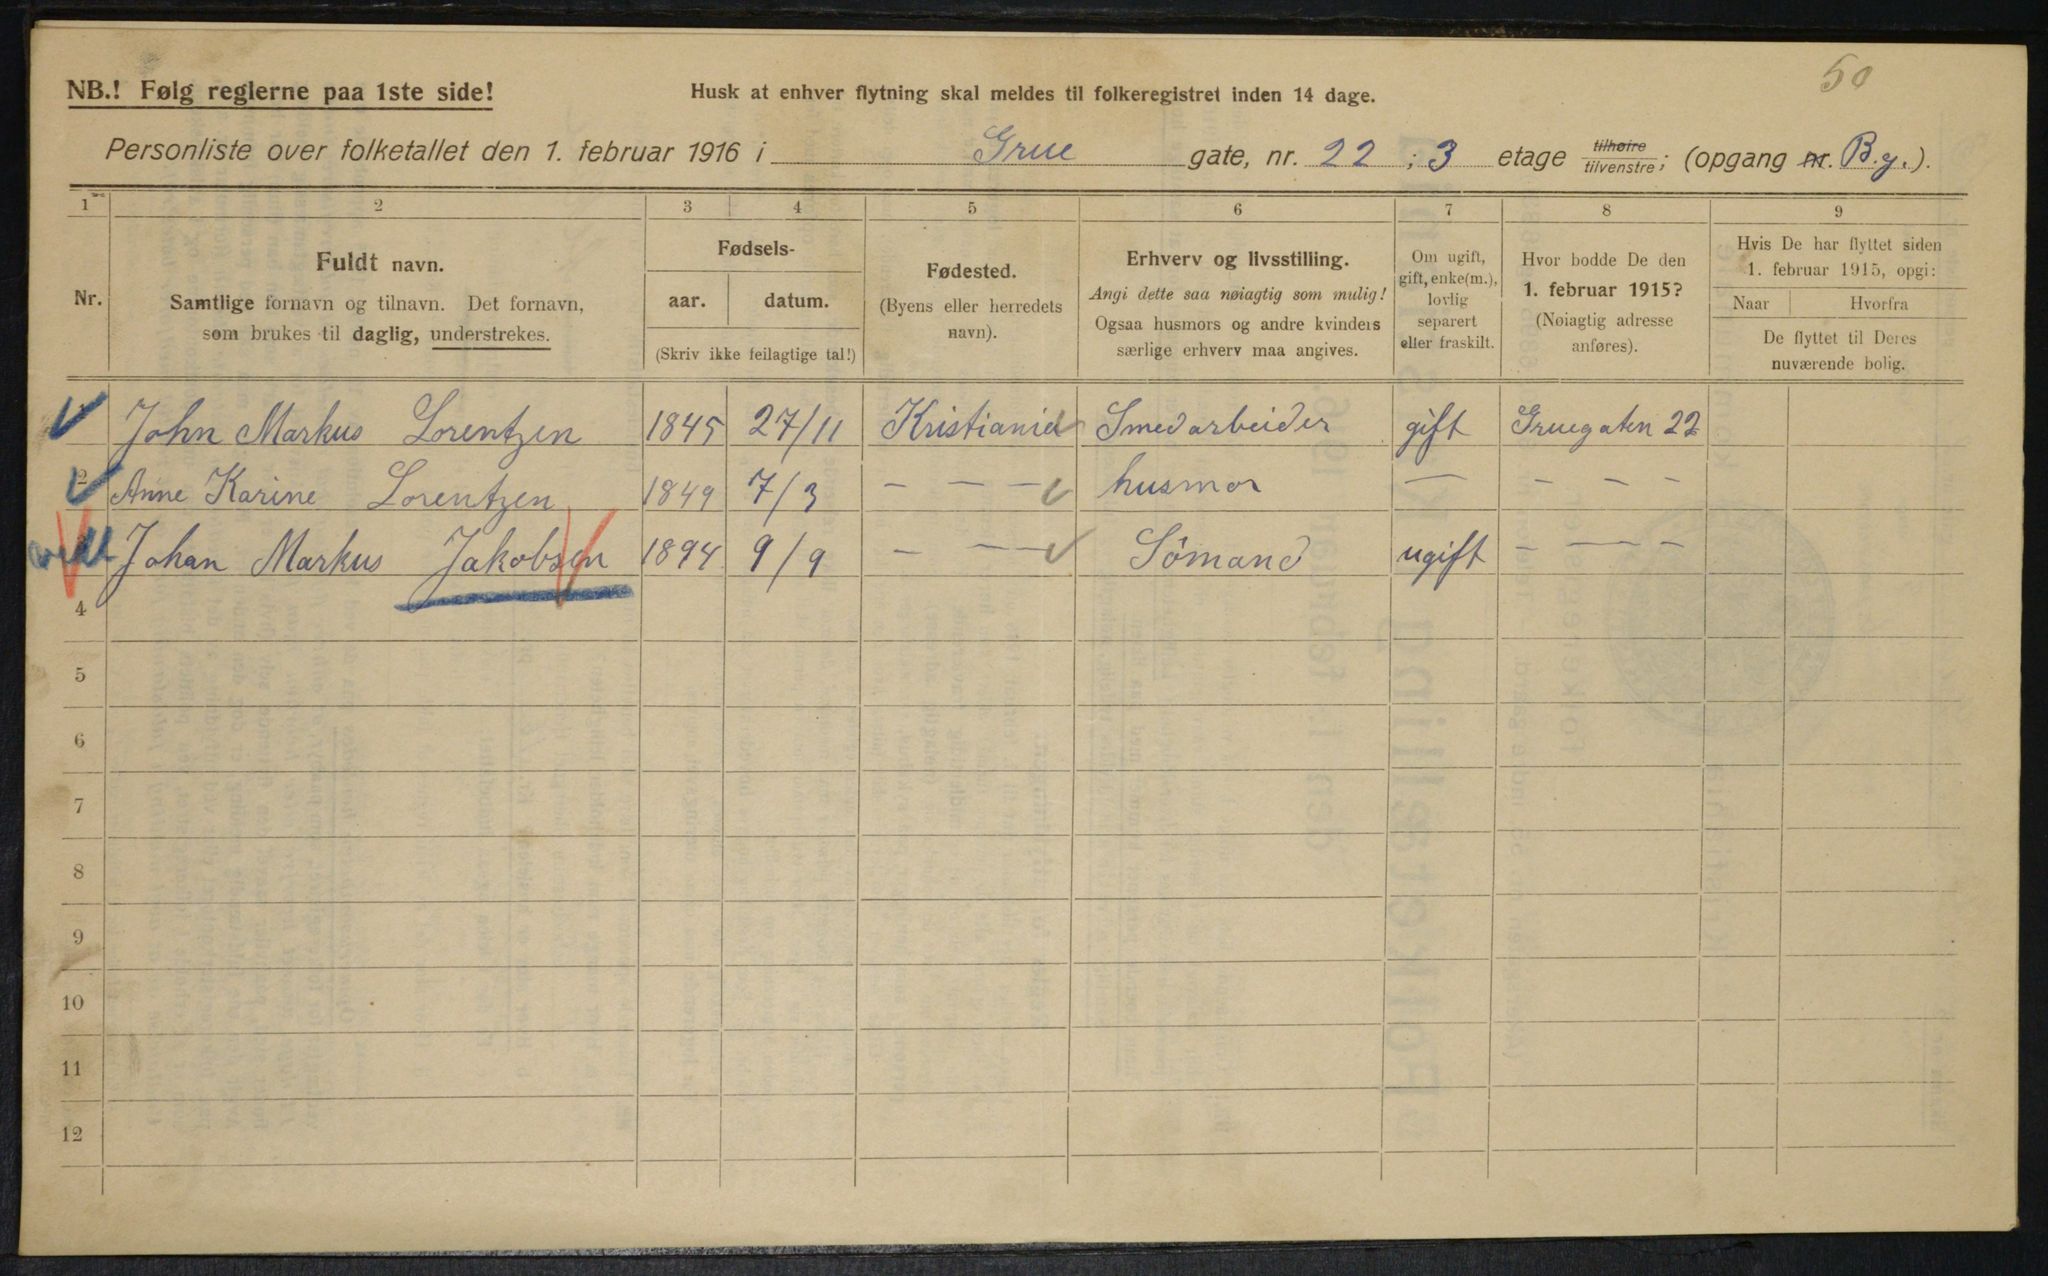 50
NB.! Følg reglerne paa 1ste side!
Husk at enhver flytning skal meldes til folkeregistret inden 14 dage.
Personliste over folketallet den 1. februar 1916 i Grue gate, nr. 22 ; 3 etage tilhøire/tilvenstre; (opgang nr. B.g.).
1 2 3 4 5 6 7 8 9
Nr.
Fuldt navn.
Samtlige fornavn og tilnavn. Det fornavn,
som brukes til daglig, understrekes.
Fødsels-
aar. datum.
(Skriv ikke feilagtige tal!)
Fødested.
(Byens eller herredets
navn).
Erhverv og livsstilling.
Angi dette saa nøiagtig som mulig!
Ogsaa husmors og andre kvinders
særlige erhverv maa angives.
Om ugift,
gift, enke(m.),
lovlig
separert
eller fraskilt.
Hvor bodde De den
1. februar 1915?
(Nøiagtig adresse
anføres).
Hvis De har flyttet siden
1. februar 1915, opgi:
Naar Hvorfra
De flyttet til Deres
nuværende bolig.
John Markus Lorentzen 1845 27/11 Kristiania Smedarbeider gift Gruegaten 22
2 Anne Karine Lorentzen 1849 7/3 — — — husmor — — — —
Johan Markus Jakobsen 1894 9/9 — — — Sömand ugift — — — —
4
5
6
7
8
9
10
11
12